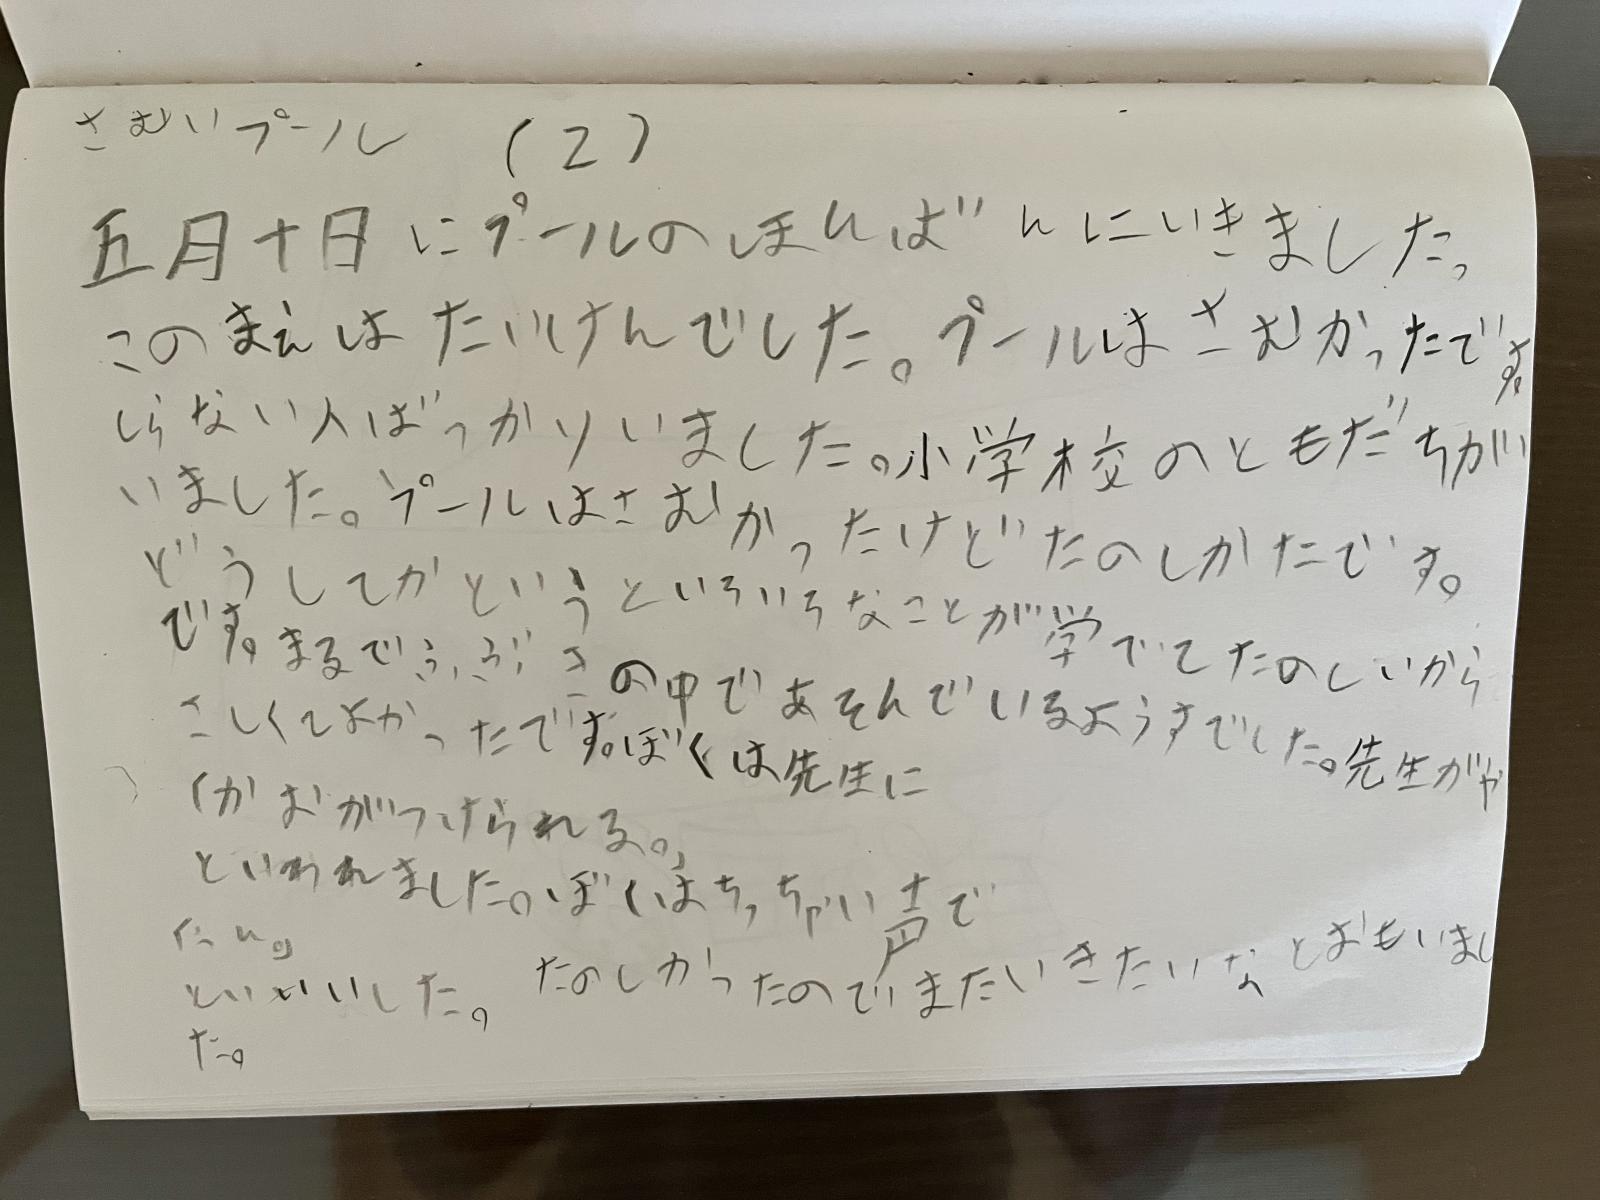 さむいプール (2)
五月十日にプールのほんばんにいきました。
このまえはたいけんでした。プールはさむかったです。
しらない人ばっかりいました。小学校のともだちがい
いました。プールはさむかったけどたのしかたです。
どうしてかというといろいろなことが学でてたのしいから
です。まるでふぶきの中であそんでいるようすでした。先生がや
さしくてよかったです。ぼくは先生に
「かおがつけられる。」
といわれました。ぼくはちっちゃい声で
「うん。」
といいした。たのしかったのでまたいきたいなとおもいまし
た。